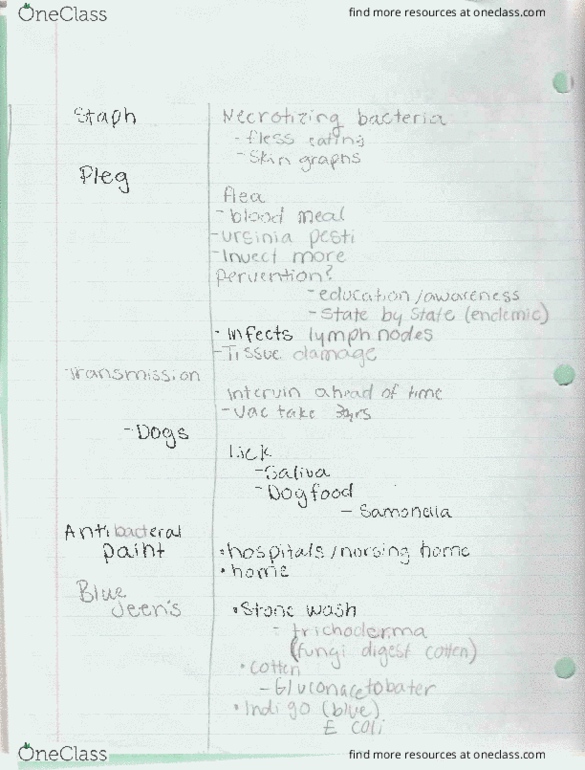 OneClass
find more resources at oneclass.com
Staph
Necrotizing bacteria
- fless eating
- Skin graphs
Pleg
flea
- blood meal
- ursinia pesti
- Invect more
pervention?
- education/awareness
- State by State (endemic)
- Infects lymph nodes
- Tissue damage
Transmission
intervin ahead of time
- vac take yrs
- Dogs
Lick
- Saliva
- Dogfood
- Samonella
Antibacteral
paint
• hospitals/norsing home
• home
Blue
Jeen's
• Stone wash
- trichoderma
(fungi digest cotten)
• cotten
- Gluconacetobater
• Indigo (blue)
E coli
OneClass
find more resources at oneclass.com